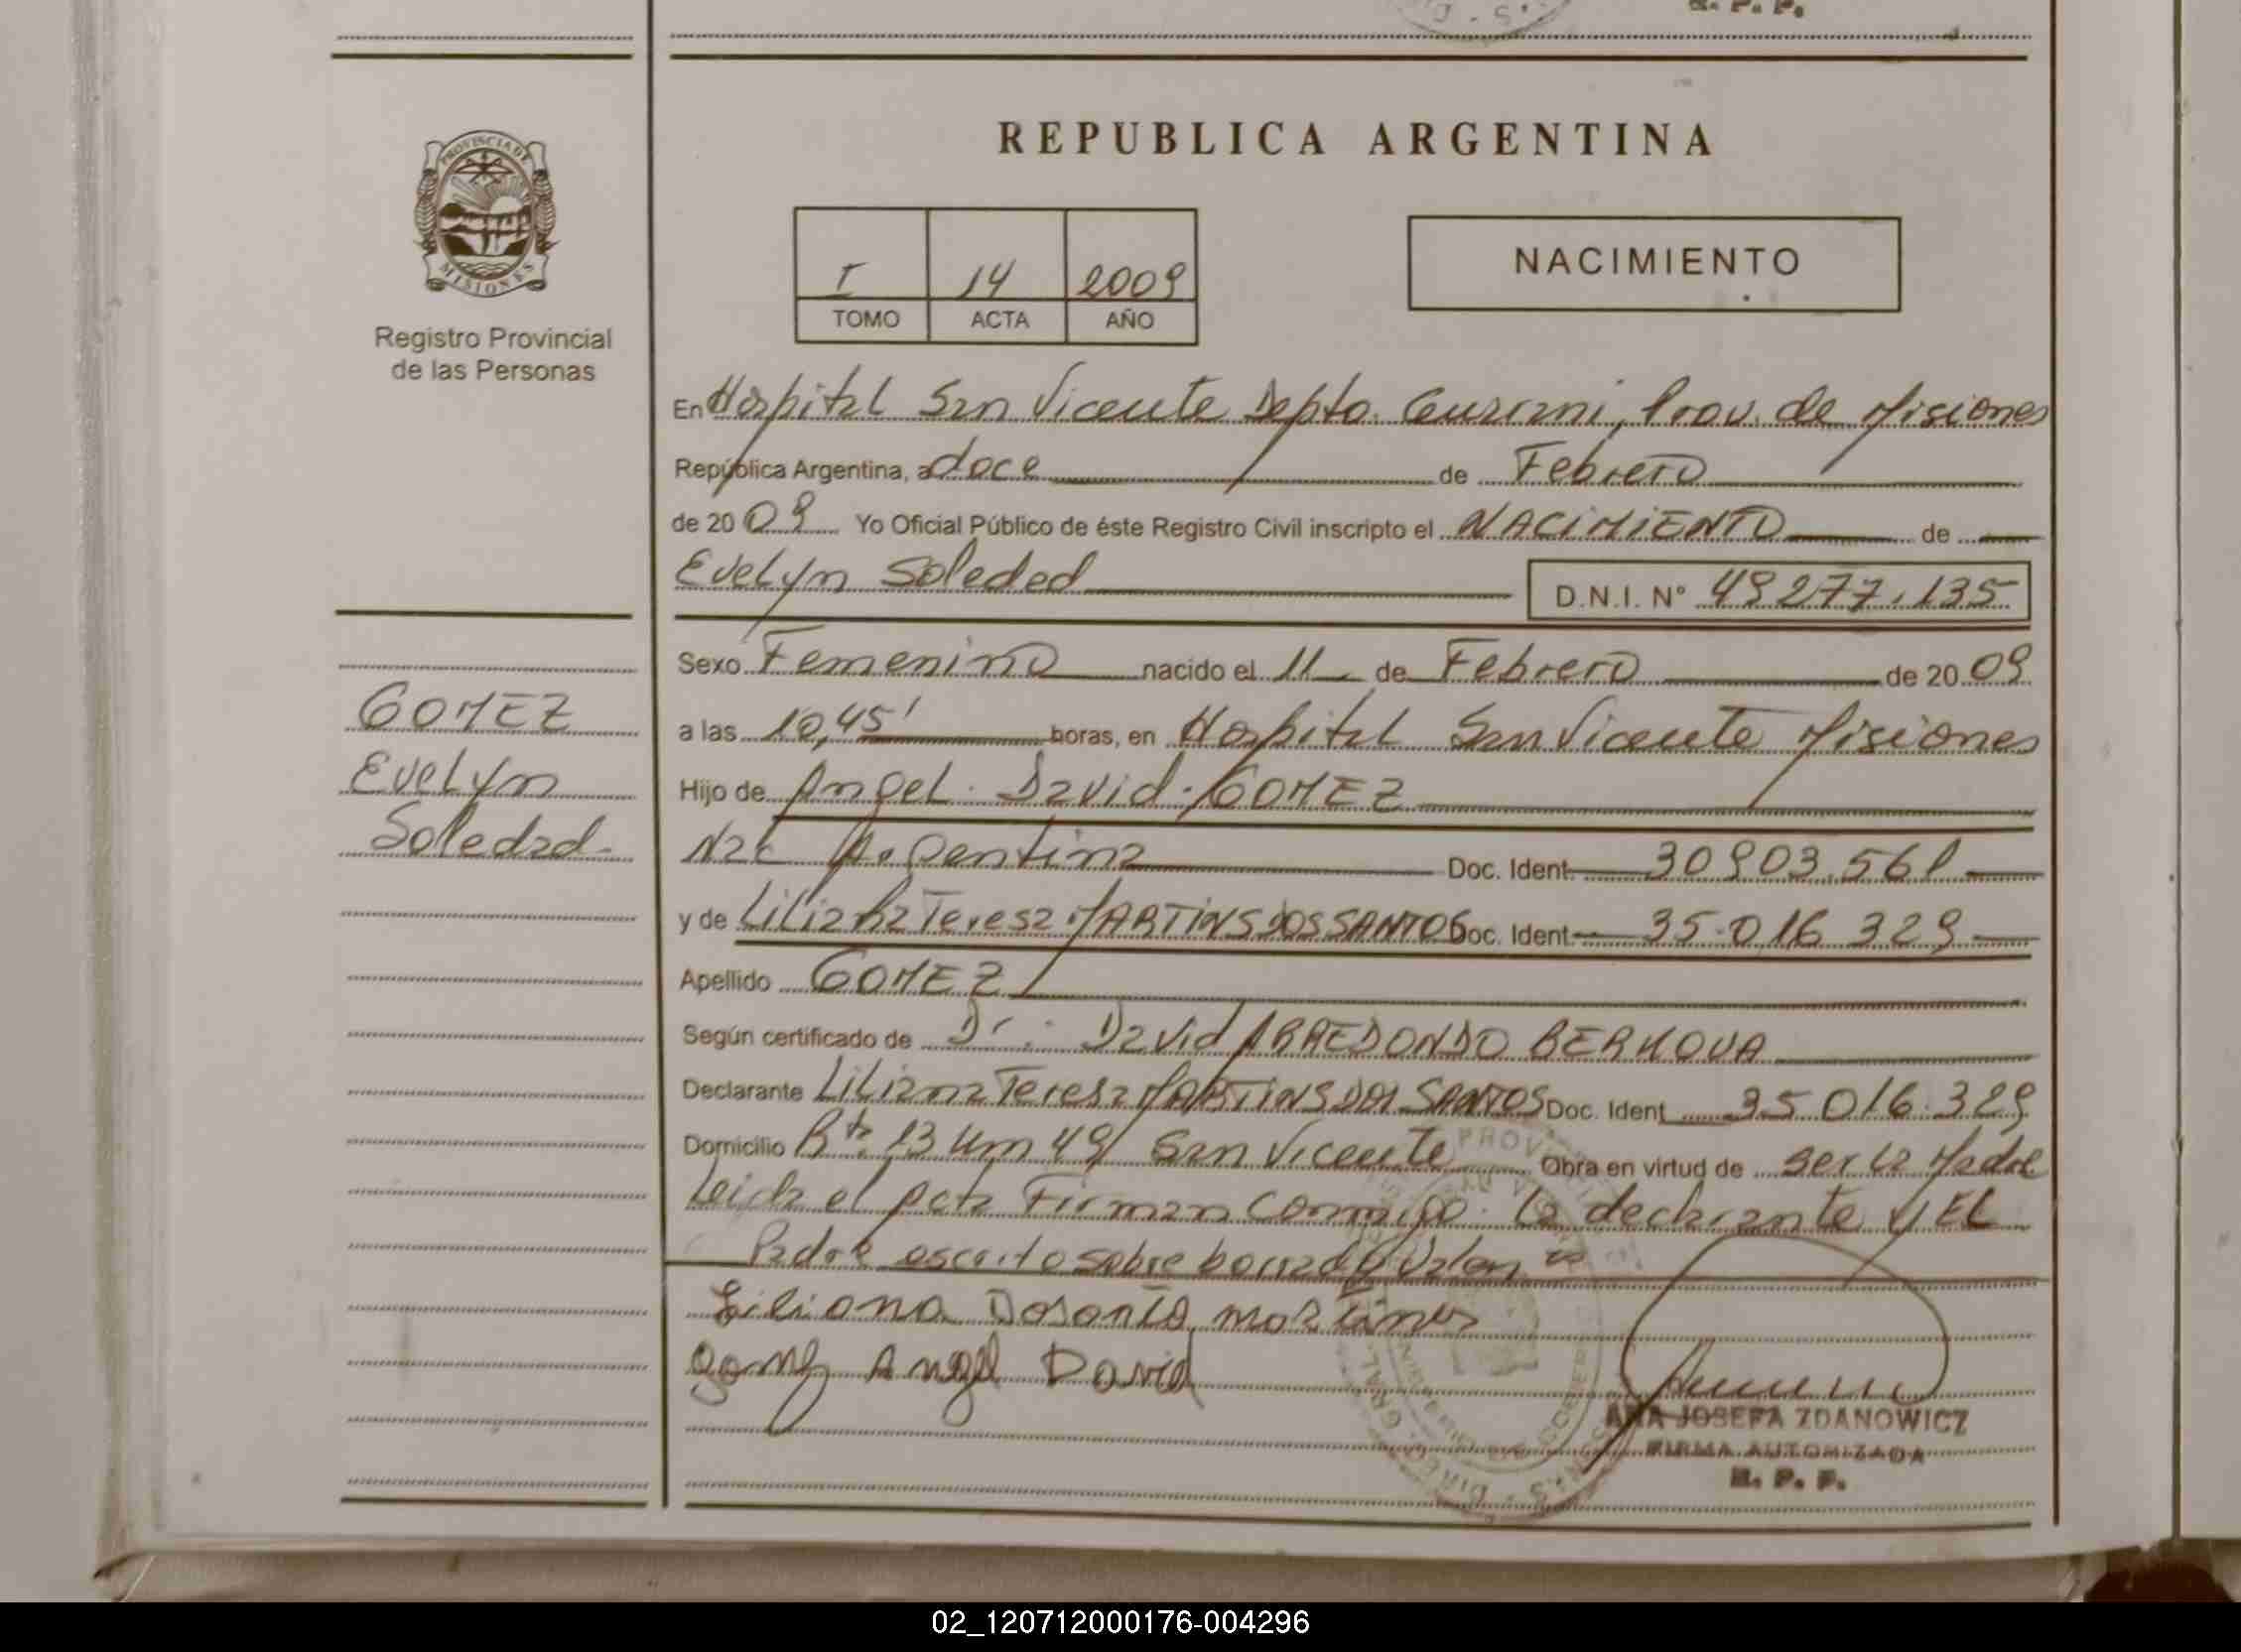 R. P. P.
REPUBLICA ARGENTINA
PROVINCIA DE
MISIONES
Registro Provincial
de las Personas
I 14 2009
TOMO ACTA AÑO
NACIMIENTO
En Hospital San Vicente Depto. Guarani, Prov. de Misiones
República Argentina, a doce de Febrero
de 2009 Yo Oficial Público de éste Registro Civil inscripto el NACIMIENTO de
Evelyn Soledad D.N.I. Nº 49277.135
Sexo Femenino nacido el 11 de Febrero de 2009
GOMEZ
Evelyn
Soledad
a las 10,45' horas, en Hospital San Vicente Misiones
Hijo de Angel David GOMEZ
Nac Argentina Doc. Ident. 30903.561
y de Liliana Teresa MARTINS DOS SANTOS Doc. Ident. 35.016 329
Apellido GOMEZ
Según certificado de Dr. David ARREDONDO BERNOVA
Declarante Liliana Teresa MARTINS DOS SANTOS Doc. Ident 35016.329
Domicilio Rta 13 Km 49 San Vicente Obra en virtud de ser la Madre
Leida el acta Firman conmigo. la declarante y EL
Padre escrito sobre borrado Valen
Liliana Dosanto martines
gomez Angel David
ANA JOSEFA ZDANOWICZ
FIRMA AUTORIZADA
R. P. P.
02_120712000176-004296